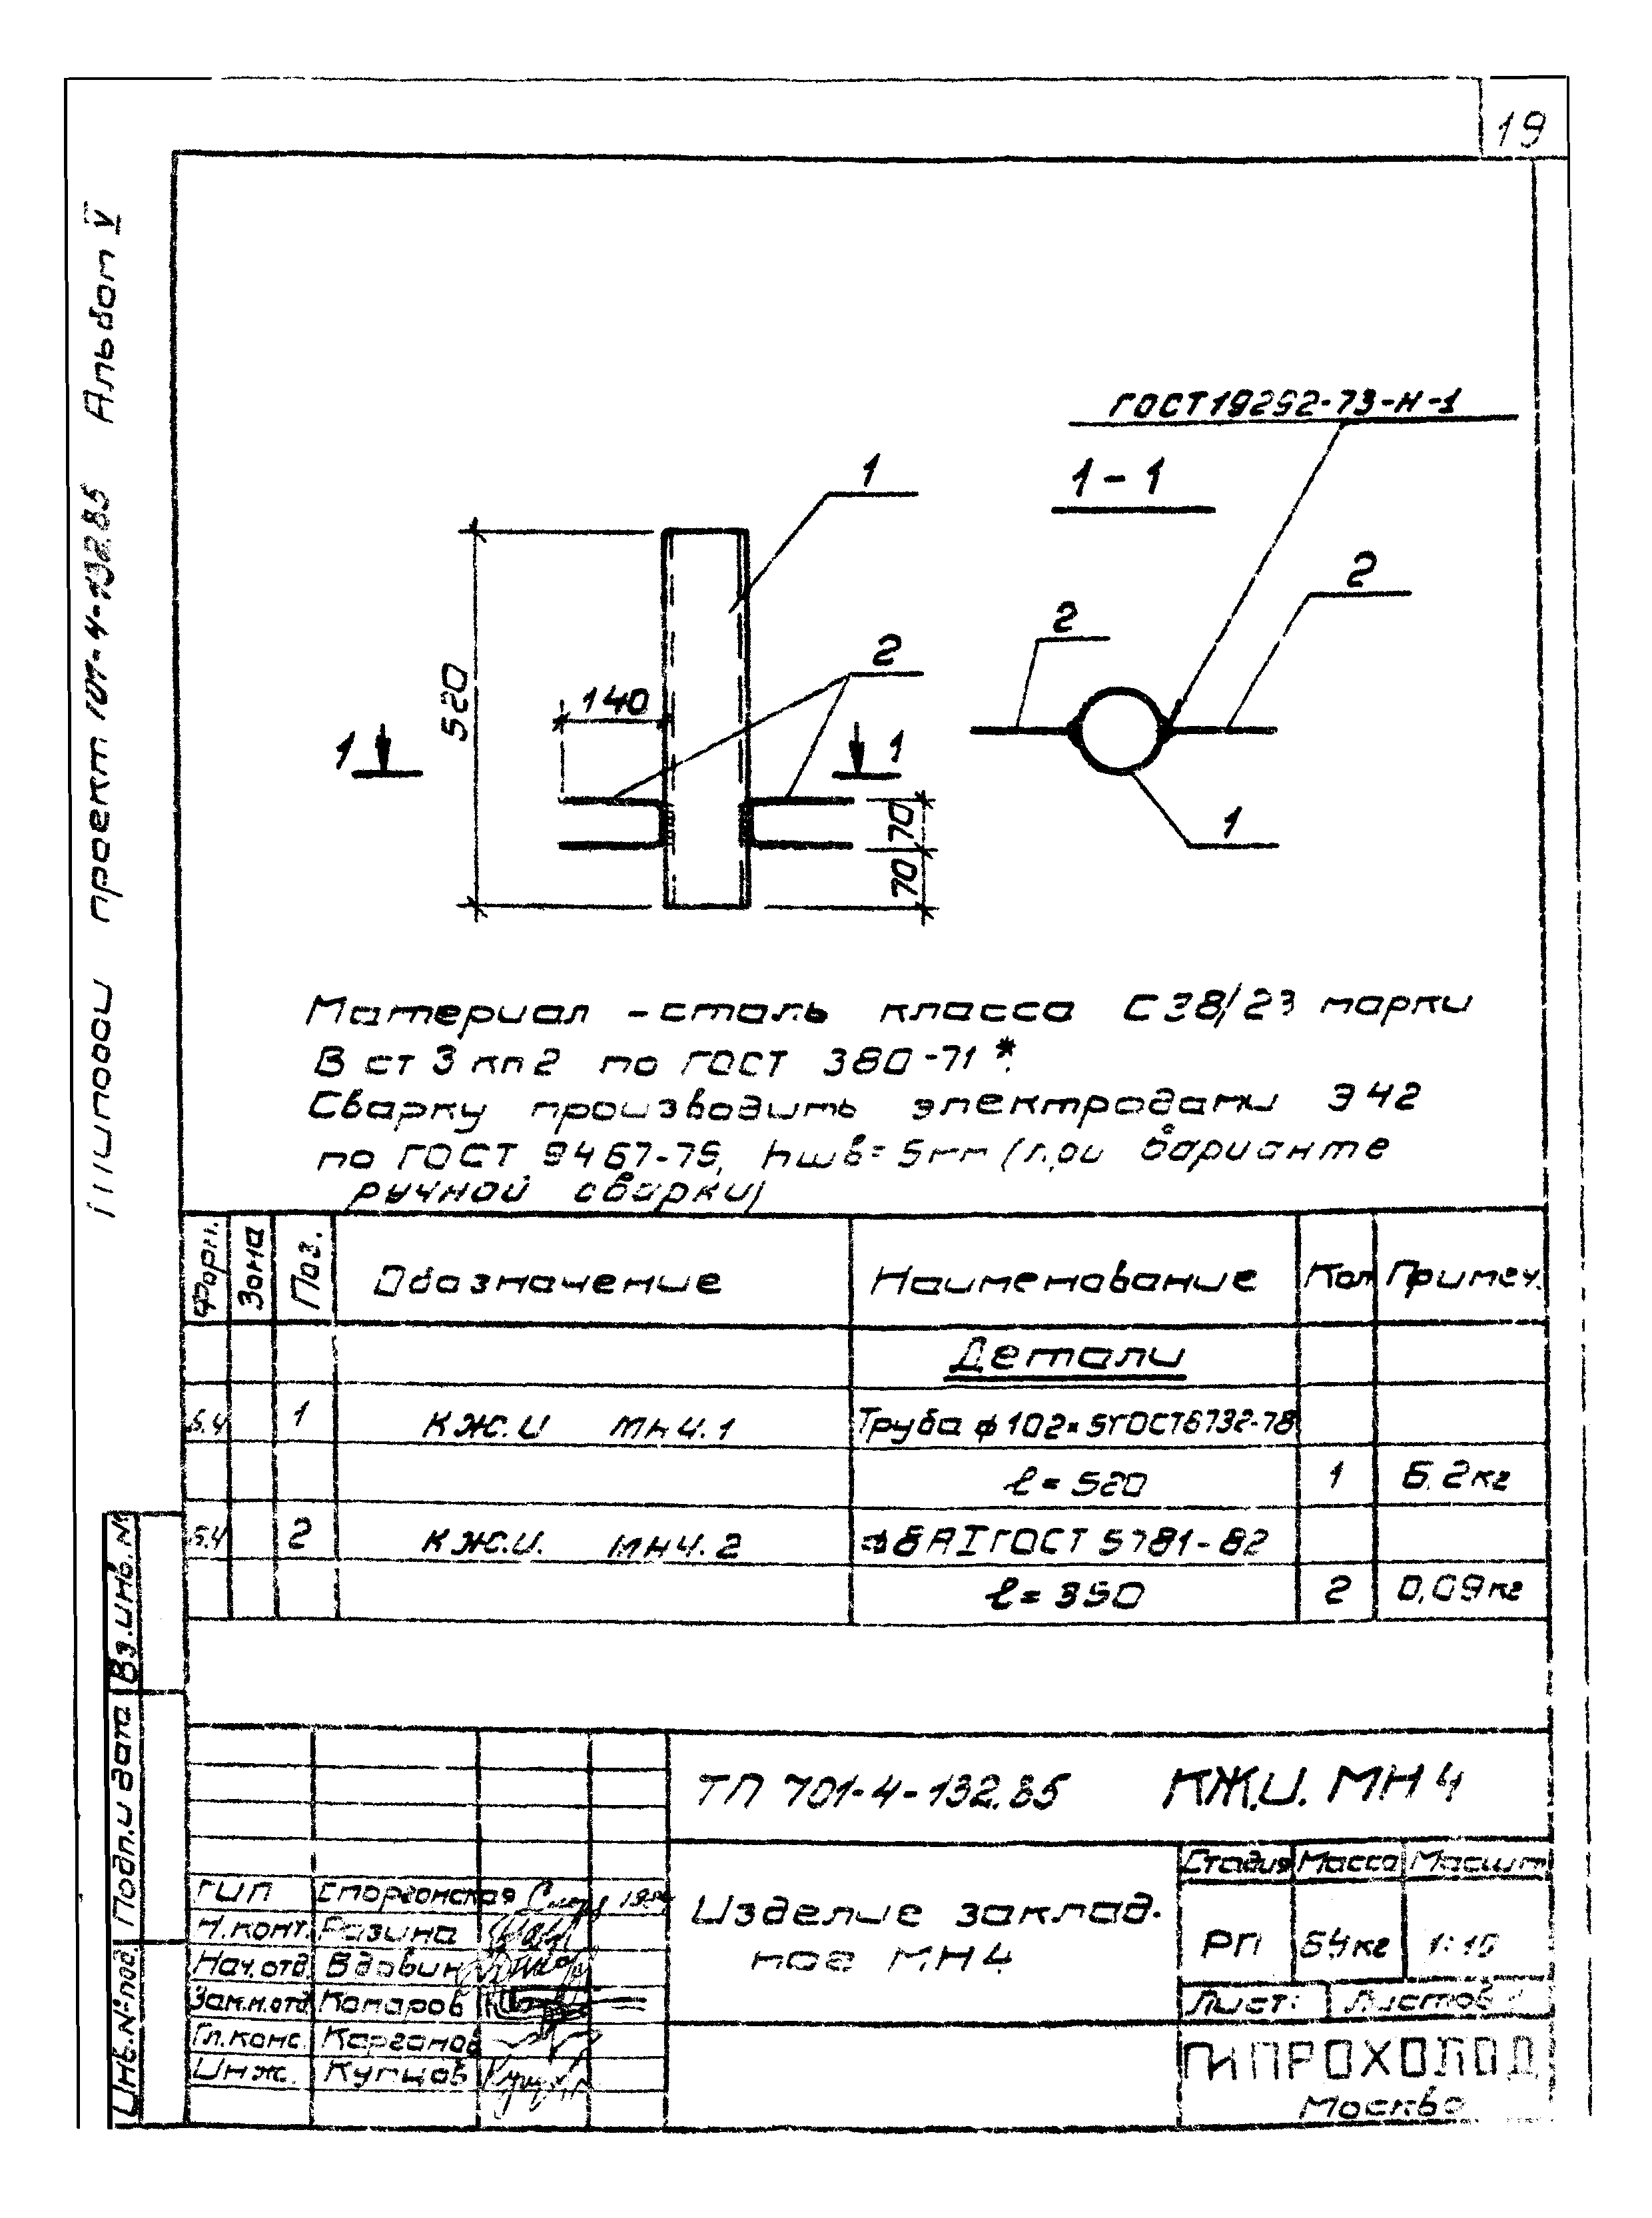 19
Альбом V
проект 701-4-132.85
ГОСТ 19292-73-Н-1
1-1
1
2
2
2
520
140
1
1
70
70
1
Материал - сталь класса С38/23 марки
В ст 3 кп 2 по ГОСТ 380-71*.
Сварку производить электродами Э42
по ГОСТ 9467-75, hшв=5мм (при варианте
ручной сварки)
Форм. Зона Поз. Обозначение Наименование Кол Примеч.
Детали
Б.Ч 1 КЖ.И МН4.1 Труба ф102×5 ГОСТ 8732-78
ℓ=520 1 6.2кг
Б.Ч 2 КЖ.И. МН4.2 ф8АI ГОСТ 5781-82
ℓ=390 2 0,09кг
Вз.инв.№
Подп.и дата
Инв.№ под.
ТП 701-4-132.85 КЖ.И.МН4
Стадия Масса Масшт
ГИП Сморгонская
Н.конт. Разина
Нач.отд. Вдовин
Зам.н.отд Комаров
Гл.конс. Карганов
Инж. Купцов
Изделие заклад-
ное МН4
РП 6.4кг 1:10
Лист: 1 Листов
ГИПРОХОЛОД
Москва